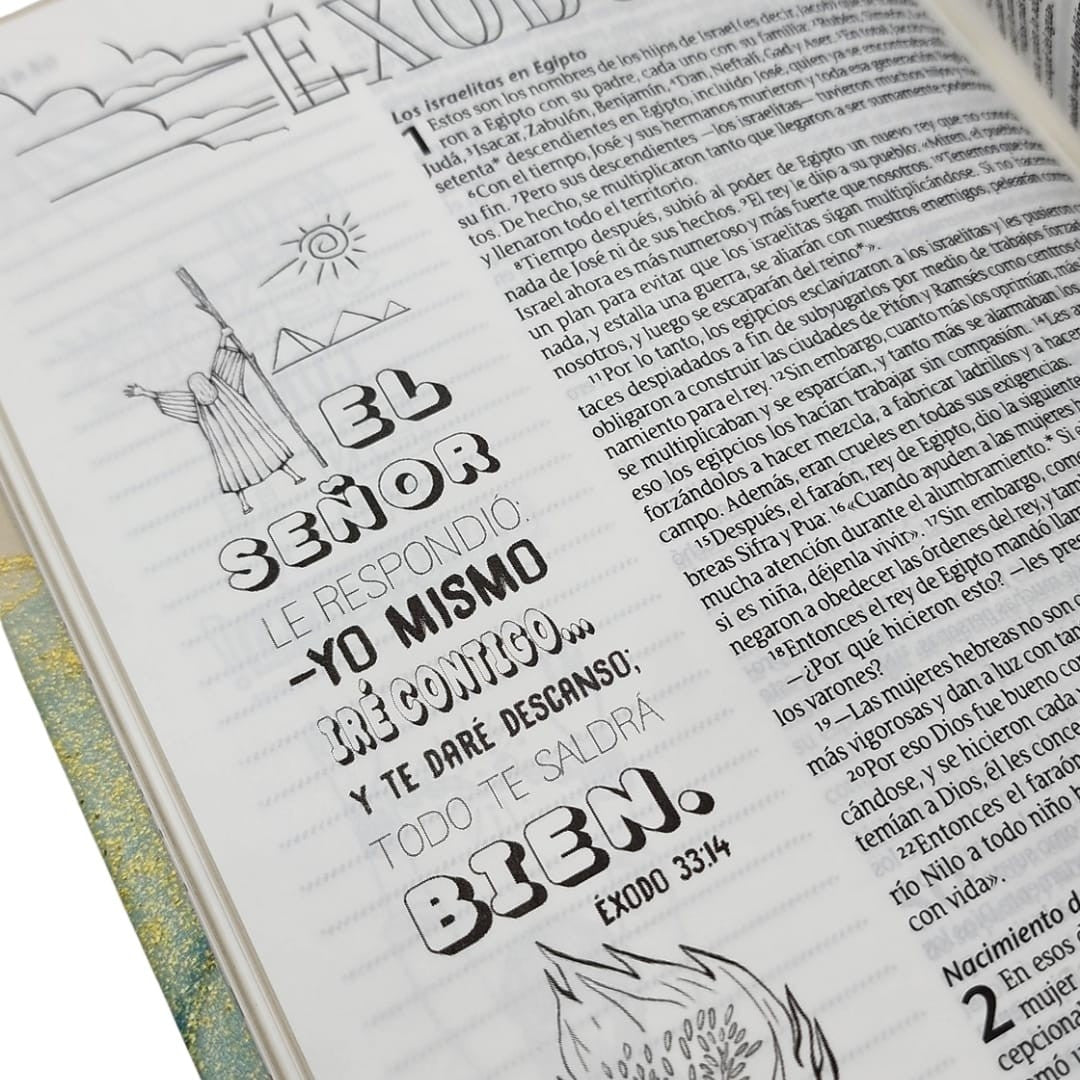 ÉXODO
EL
SEÑOR
LE RESPONDIÓ:
—YO MISMO
IRÉ CONTIGO...
Y TE DARÉ DESCANSO;
TODO TE SALDRÁ
BIEN.
ÉXODO 33:14
Los israelitas en Egipto
1 Estos son los nombres de los hijos de Israel (es decir, Jacob) que
ron a Egipto con su padre, cada uno con su familia: ²Rubén,
Judá, ³Isacar, Zabulón, Benjamín, ⁴Dan, Neftalí, Gad y Aser. ⁵En total, Jacob
setenta* descendientes en Egipto, incluido José, quien ya se encontraba
⁶Con el tiempo, José y sus hermanos murieron y toda esa generación
su fin. ⁷Pero sus descendientes —los israelitas— tuvieron muchos hijos y
tos. De hecho, se multiplicaron tanto que llegaron a ser sumamente poderosos
y llenaron todo el territorio.
⁸Tiempo después, subió al poder de Egipto un nuevo rey que no
nada de José ni de sus hechos. ⁹El rey le dijo a su pueblo: «Miren, el pueblo
Israel ahora es más numeroso y más fuerte que nosotros. ¹⁰Tenemos que
un plan para evitar que los israelitas sigan multiplicándose. Si no
nada, y estalla una guerra, se aliarán con nuestros enemigos, pelearán
nosotros, y luego se escaparán del reino*».
¹¹Por lo tanto, los egipcios esclavizaron a los israelitas y les pusieron
taces despiadados a fin de subyugarlos por medio de trabajos
obligaron a construir las ciudades de Pitón y Ramsés como centros
namiento para el rey. ¹²Sin embargo, cuanto más los oprimían, más
se multiplicaban y se esparcían, y tanto más se alarmaban los
eso los egipcios los hacían trabajar sin compasión. ¹⁴Les
forzándolos a hacer mezcla, a fabricar ladrillos y a hacer
campo. Además, eran crueles en todas sus exigencias.
¹⁵Después, el faraón, rey de Egipto, dio la siguiente
breas Sifra y Pua: ¹⁶«Cuando ayuden a las mujeres
mucha atención durante el alumbramiento.* Si
si es niña, déjenla vivir». ¹⁷Sin embargo, como
negaron a obedecer las órdenes del rey, y
¹⁸Entonces el rey de Egipto mandó
—¿Por qué hicieron esto? —les
los varones?
¹⁹—Las mujeres hebreas no son
más vigorosas y dan a luz con
²⁰Por eso Dios fue bueno
cándose, y se hicieron cada
temían a Dios, él les
²²Entonces el faraón
río Nilo a todo niño
con vida».
Nacimiento
2 En esos
mujer